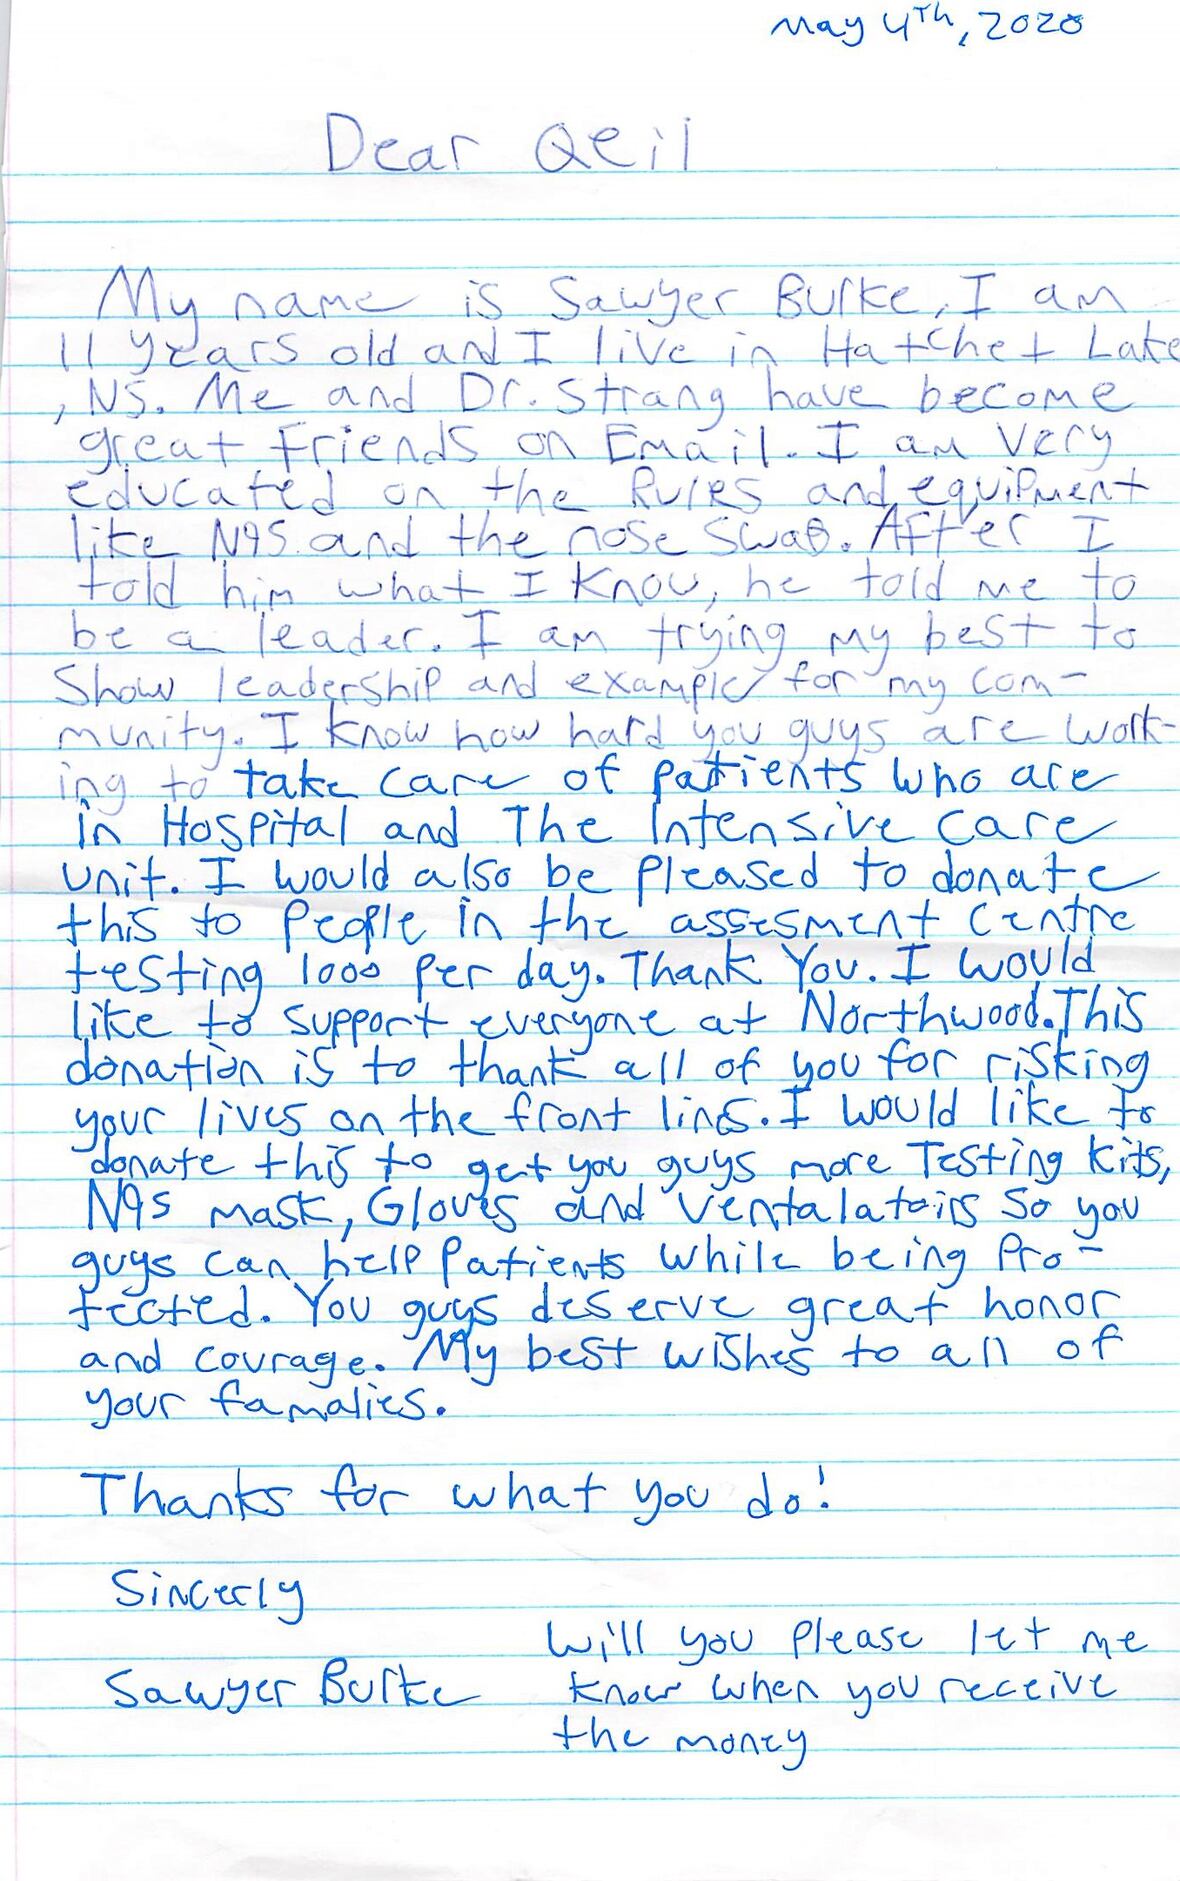 May 4Th, 2020
Dear QEII
My name is Sawyer Burke, I am
11 years old and I live in Hatchet Lake
, NS. Me and Dr. Strang have become
great Friends on Email. I am very
educated on the Rules and equipment
like N95 and the nose swab. After I
told him what I know, he told me to
be a leader. I am trying my best to
Show leadership and example for my com-
munity. I know how hard you guys are work-
ing to take care of patients who are
in Hospital and The Intensive care
unit. I would also be pleased to donate
this to people in the assesment centre
testing 1000 per day. Thank You. I would
like to support everyone at Northwood. This
donation is to thank all of you for risking
your lives on the front lines. I would like to
donate this to get you guys more Testing Kits,
N95 mask, Gloves and ventalatoirs So you
guys can help patients while being Pro-
tected. You guys deserve great honor
and courage. My best wishes to all of
your famalies.
Thanks for what you do!
Sincerly
Sawyer Burke
Will you please let me
know when you receive
the money